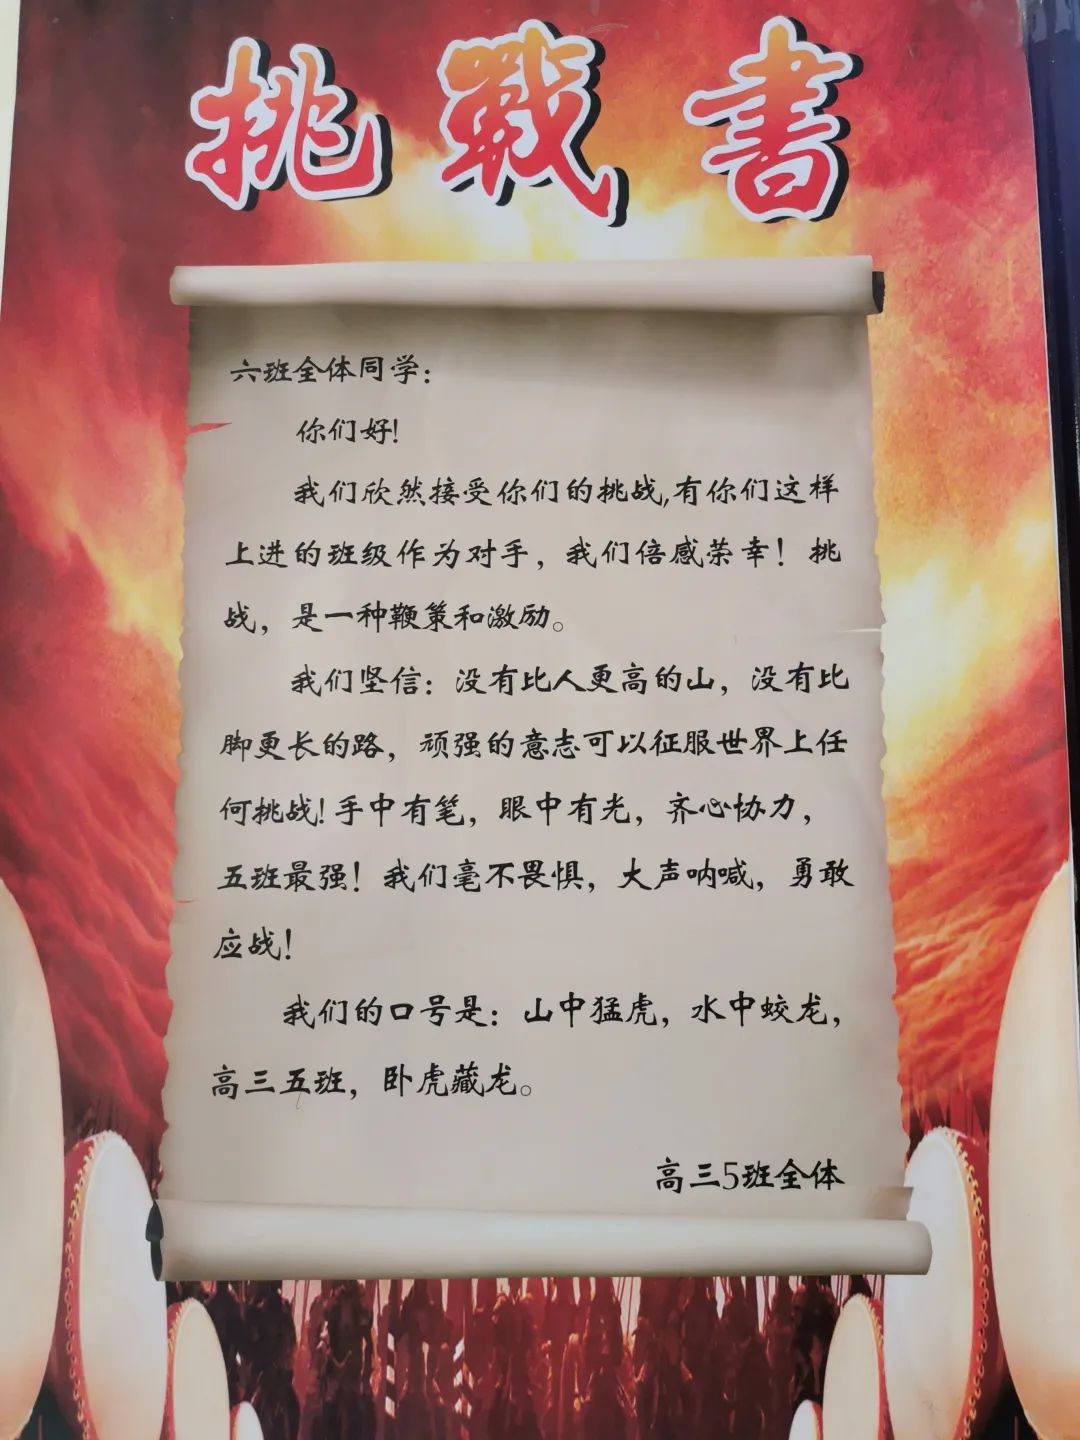 挑戰書
六班全体同学：
你们好！
我们欣然接受你们的挑战,有你们这样
上进的班级作为对手，我们倍感荣幸！挑
战，是一种鞭策和激励。
我们坚信：没有比人更高的山，没有比
脚更长的路，顽强的意志可以征服世界上任
何挑战！手中有笔，眼中有光，齐心协力，
五班最强！我们毫不畏惧，大声呐喊，勇敢
应战！
我们的口号是：山中猛虎，水中蛟龙，
高三五班，卧虎藏龙。
高三5班全体